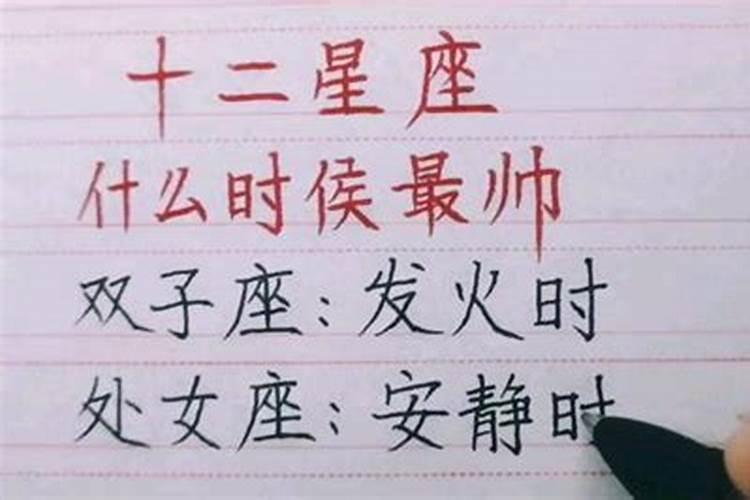 十二星座
什么时侯最帅
双子座:发火时
处女座:安静时